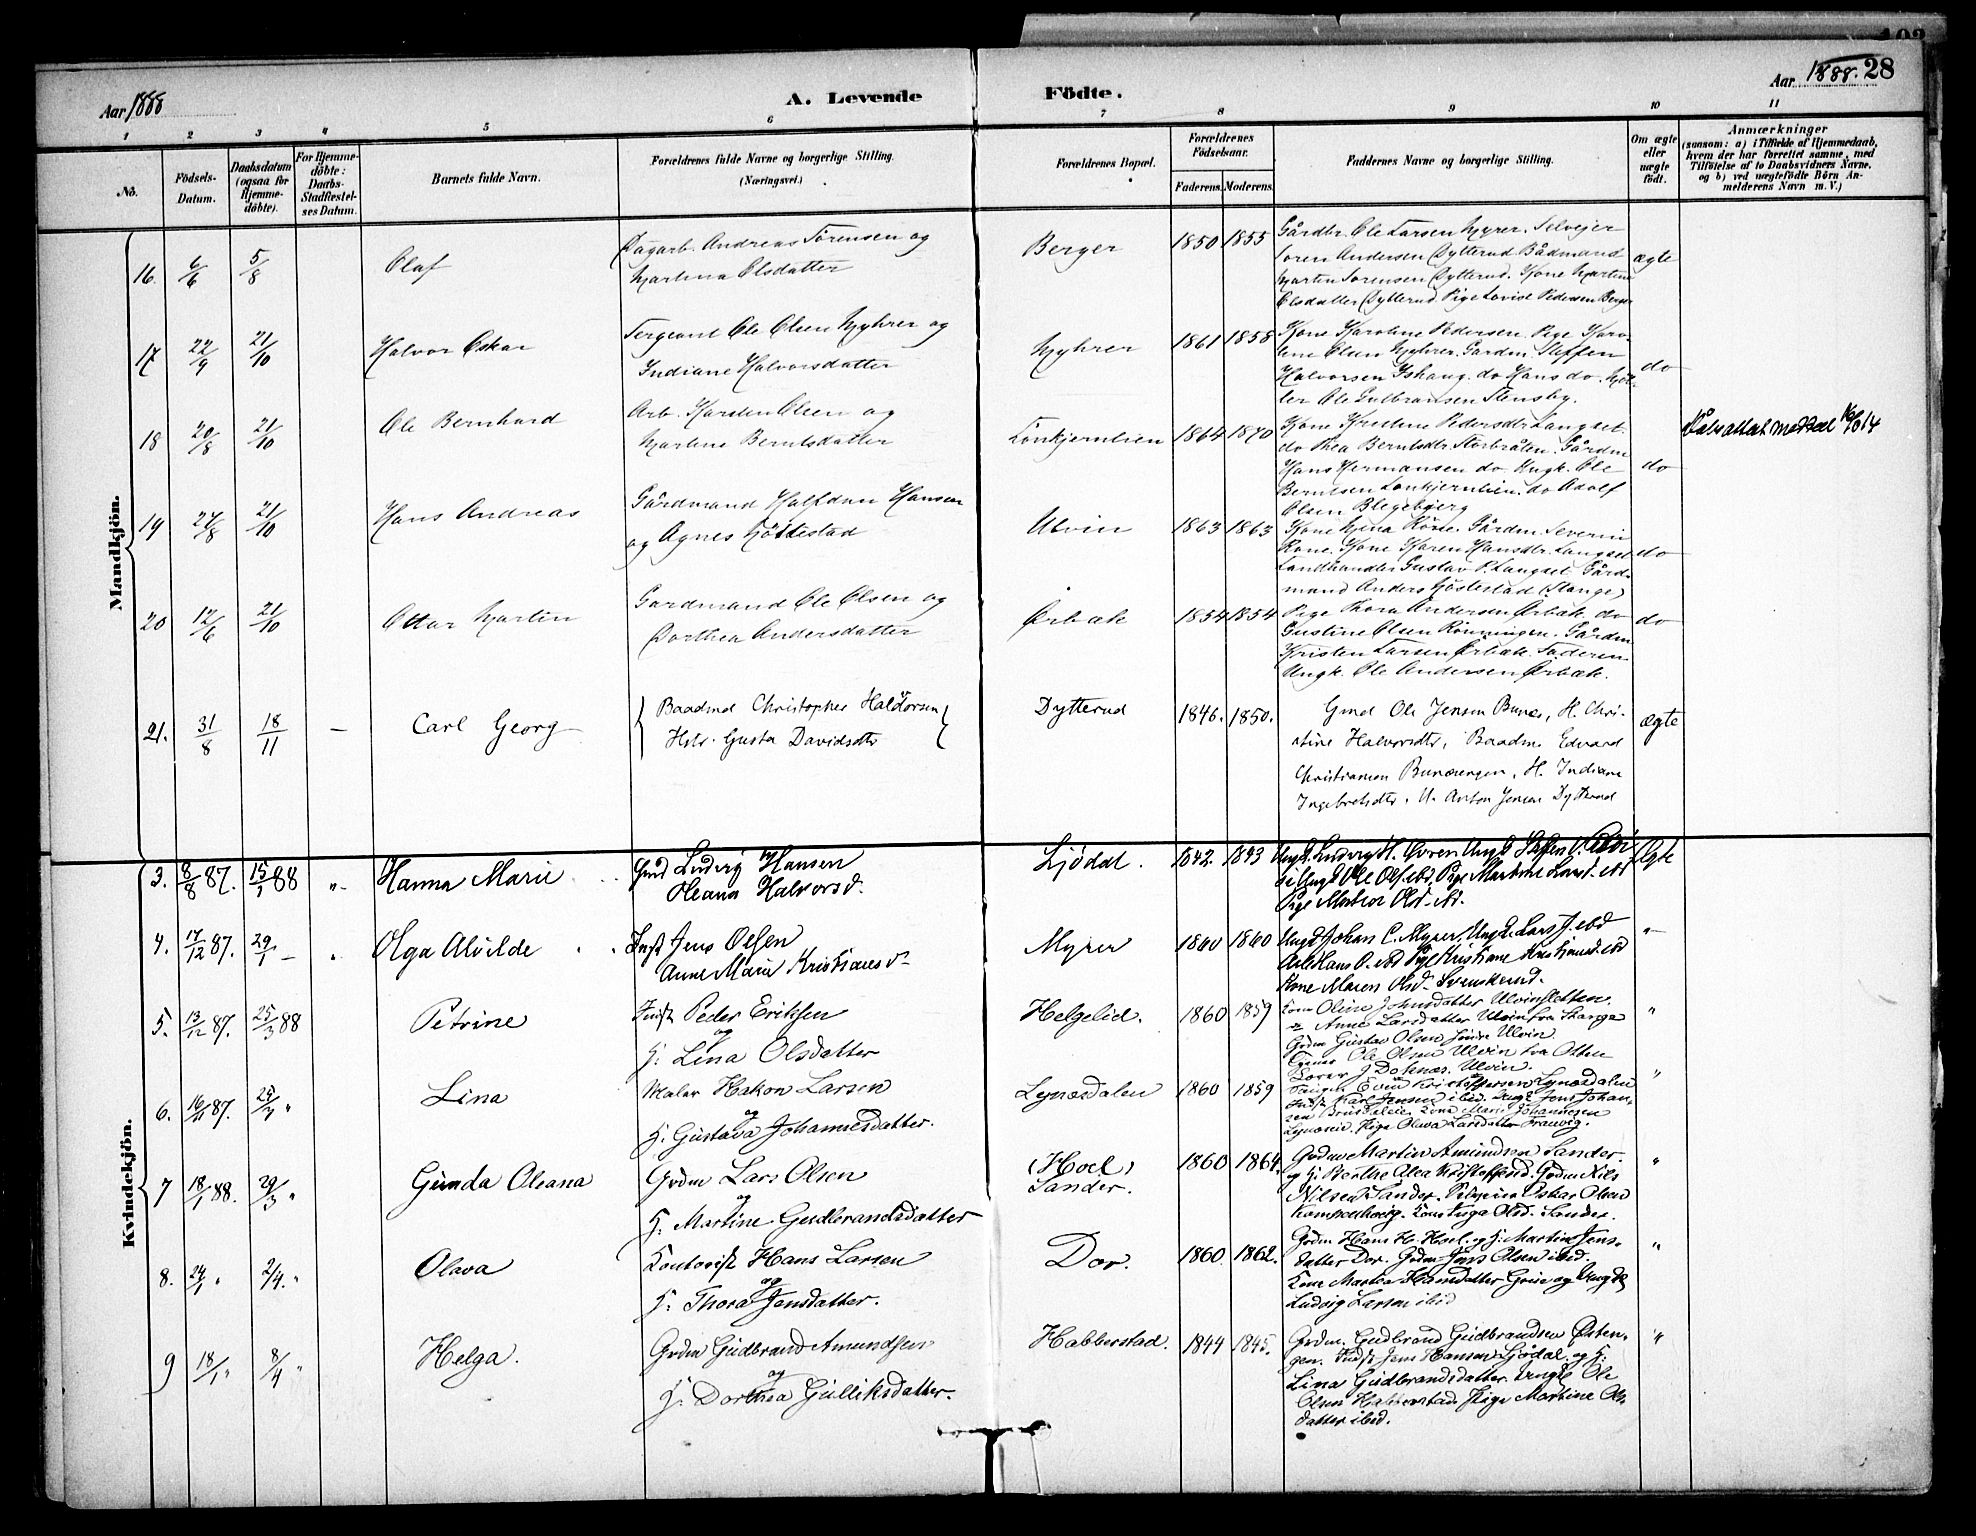 Aar 1888
A. Levende
Födte.
Aar 1888. 28
1 2 3 4 5 6 7 8 9 10 11
No.
Födsels-Datum.
Daabsdatum (ogsaa for Hjemmedöbte).
For Hjemmedöbte: Daabs-Stadfæstelses Datum.
Barnets fulde Navn.
Forældrenes fulde Navne og borgerlige Stilling. (Næringsvei.)
Forældrenes Bopæl.
Forældrenes Födselsaar.
Faderens. Moderens.
Faddernes Navne og borgerlige Stilling.
Om ægte eller uægte födt.
Anmærkninger (saasom: a) i Tilfælde af Hjemmedaab, hvem der har forrettet samme, med Tilföielse af to Daabsvidners Navne, og b) ved uægtefödte Börn Anmelderens Navn m. V.)
Mandkjön.
16. 6/6 5/8 Olaf
Dagarb. Andreas Sörensen og
Martina Olsdatter
Berger 1850 1855
Gårdbr. Ole Larsen Myrer. Selveier
Soren Andersen Dytterud. Bådmand
Martin Sorensen Dytterud. Kone Martine
Olsdatter Dytterud. Pige Lovise Pedersen Berger
ægte
17 22/9 21/10 Halvor Oskar
Sergeant Ole Olsen Myhrer og
Indiane Halvorsdatter
Myhrer 1861 1858
Kone Karoline Pedersen. Pige Karo-
line Olsen Myhrer. Gardm. Steffen
Halvorsen Ishaug. do Hans do.
Ole Gulbransen Stensby.
do
18 20/8 21/10 Ole Bernhard
Arb. Karsten Olsen og
Martene Berntsdatter
Tonkjernlien 1864 1870
Kone Kristene Pedersdtr Langset.
do Thea Berntsdtr. Storbråten. Gårdm
Hans Hermansen do. Ungk. Ole
Berntsen Tonkjernlien. do Adolf
Olsen Blegebjerg
do
19 27/8 21/10 Hans Andreas
Gårdmand Halfdan Hansen
og Agnes Hjöllestad
Ulvin 1863 1863
Kone Mina Röne. Gårdm. Severin
Rone. Kone Karen Hansdtr. Langset
Landhandler Gustav P. Langset. Gård-
mand Anders (Stange)
do
20 12/6 21/10 Ottar Martin
Gardmand Ole Olsen og
Dorthea Andersdatter
Ørbæk 1854 1854
Pige Thora Andersen Ørbæk. do
Gustine Olsen Rönningen. Gårdm
Kristen Larsen Ørbæk. Faderen.
Ungk. Ole Andersen Ørbæk.
do
21. 31/8 18/11 – Carl Georg
Baadmd Christopher Haldorsen
Hstr. Gusta Davidsdtr
Dytterud 1846. 1850.
Gmd Ole Jensen Bunes, H. Chri-
stine Halvorsdtr, Baadm. Edvard
Christiansen Bunæsengen, H. Indiane
Ingebretsdtr. U. Anton Jensen Dytterud
ægte
Kvindekjön.
3. 8/8 87. 15/1 88 " Hanna Marie
Gmd Ludvig Hansen
Oleana Halvorsd.
Ljödal. 1842. 1843
Ungk. Ludvig H.
Ole Ols. ibd. Pige Martine ibd
Pige
Ægte
4. 17/12 87. 29/1 – " Olga Alvilde
Indst Jens Olsen
Anne Marie Kristiansd.
Myrer 1860 1860
Ungk Johan C. Myrer, Ungk. Lars J. ibd
Arb Hans ibd Pige Kristiane ibd
Kone Maren Olsd. Svenskerud.
"
5. 13/12 87. 25/3 88 Petrine
Indst Peder Eriksen
og
H: Lina Olsdatter
Helgelid. 1860 1859
Kone Oline Johnsdatter Ulvinsletten.
Anne Larsdatter Ulvin fra Stange
Grdm Gustav Olsen Söndre Ulvin.
Ole Olsen Ulvin fra Ottun
Lærer J Dohnæs. Ulvin.
"
6. 16/11 87. 25/3 " Lina
Maler Hakon Larsen
og
H: Gustava Johannesdatter.
Lynæsdalen 1860 1859
Even Kristoffersen Lynæsdalen
Indst Karl Jensen ibid. Ungk Jens Johan-
sen Brusdalen Kone Marie Johannesen
Lynæseie. Pige Olava Larsdatter
"
7 18/1 88. 29/3 " Gunda Oleana
Grdm Lars Olsen
og
H: Martine Gudbrandsdatter
(Hoel)
Sander. 1860 1864.
Grdm Martin Amundsen Sander.
og H: Berthe Olea Kristoffersd. Grdm Nils
Nilsen Sander. Oskar Olsen
Kampenhoug. Kone Inga Olsd. Sander.
"
8. 24/1 " 2/4. " Olava
Kontorist Hans Larsen
og
H: Thora Jensdatter.
Dor. 1860 1862.
Grdm Hans H. Hoel. og H: Martine Jens-
datter Dor. Grdm Jens Olsen ibid.
Kone Martea Hansdatter og Ungk
Ludvig Larsen ibid
"
9 18/1 " 8/4 " Helga.
Grdm Gudbrand Amundsen
og
H: Dorthea Gulliksdatter.
Habberstad. 1844 1845.
Grdm. Gudbrand Gudbrandsen Østen-
gen. Indst Jens Hansen Ljödal. og H:
Lina Gudbrandsdatter. Ungk Ole
Olsen Habberstad. Pige Martine Ols-
datter ibid.
"